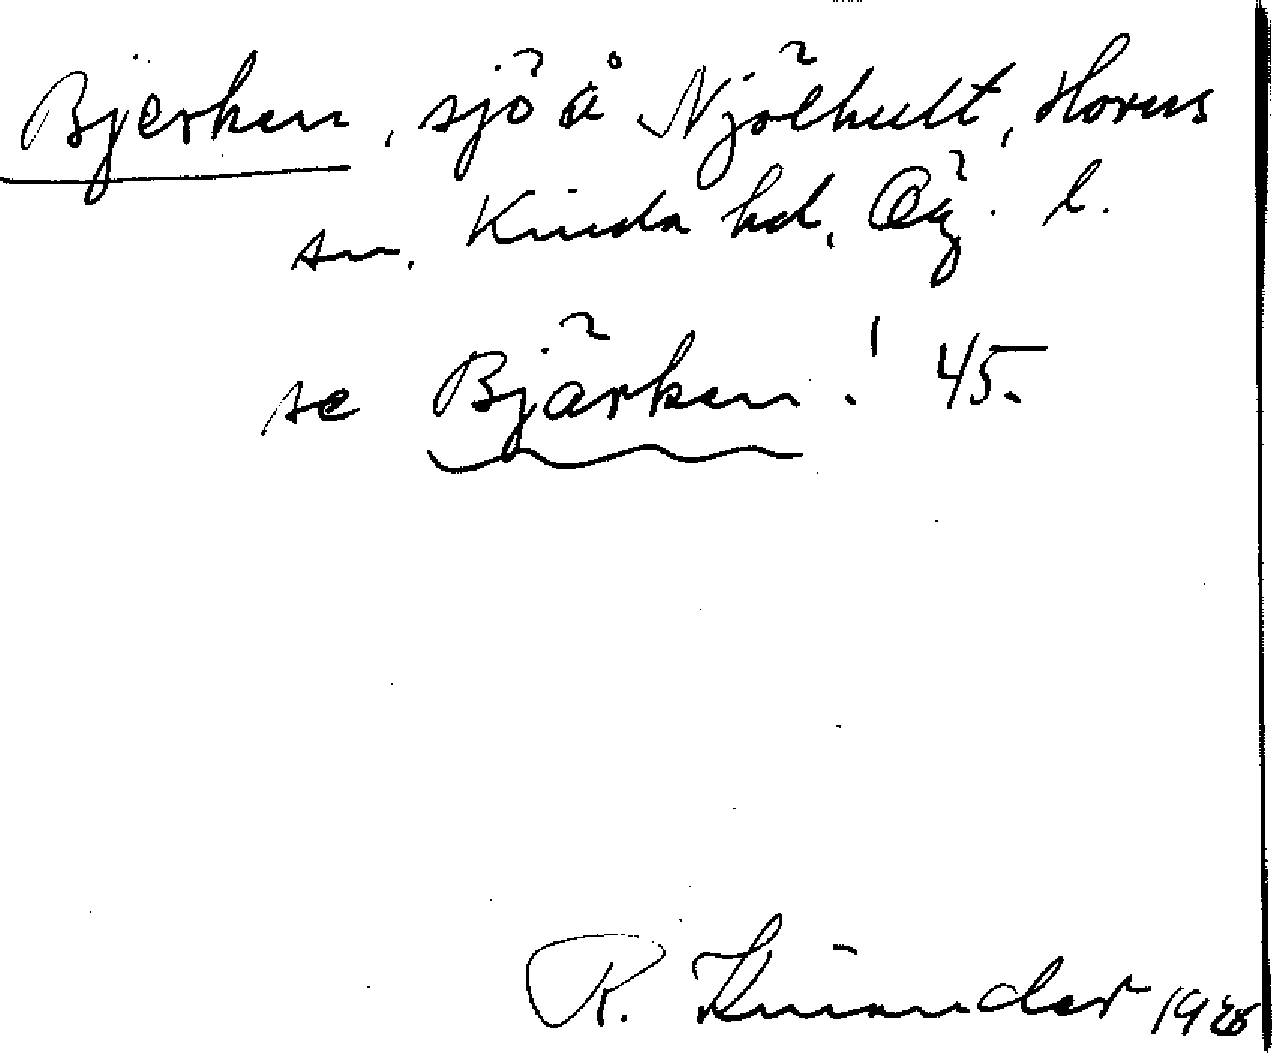 Bjerken, sjö å Njölhult, Horns
sn. Kinda hd, Ög. l.
se Bjärken! 45.
R. Kinander 1928